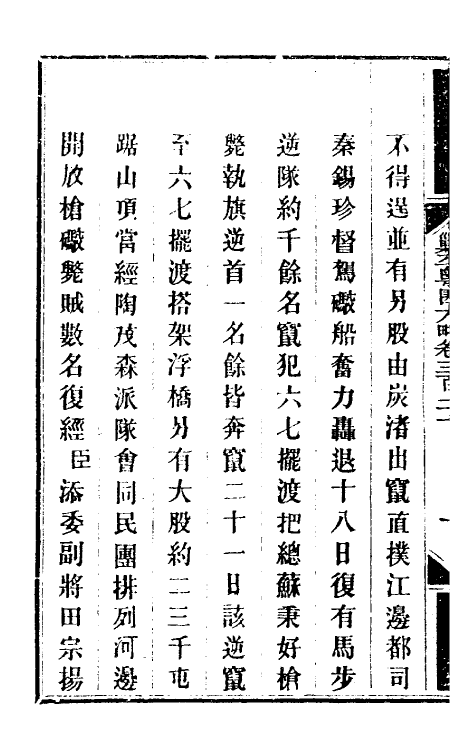 不得逞並有另股由炭渚出竄直撲江邊都司
秦錫珍督駕礮船奮力轟退十八日復有馬步
逆隊約千餘名竄犯六七擺渡把總蘇秉好槍
斃執旗逆首一名餘皆奔竄二十一日該逆竄
至六七擺渡搭架浮橋另有大股約二三千屯
踞山頂當經陶茂森派隊會同民團排列河邊
開放槍礮斃賊數名復經臣添委副將田宗揚